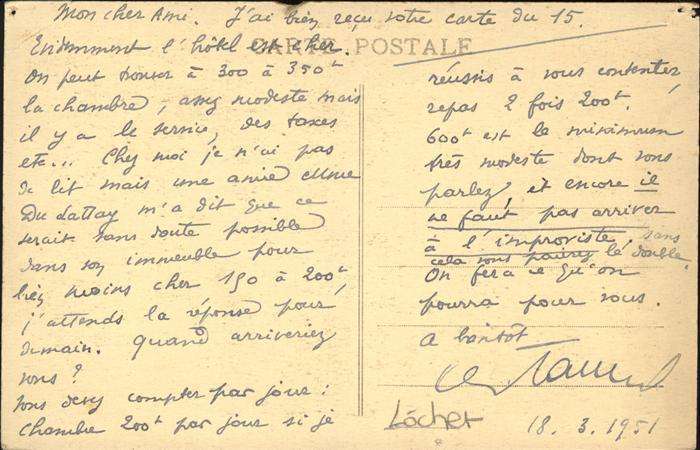 Mon cher Ami. J'ai bien reçu votre carte du 15.
Evidemment l'hôtel est cher.
CARTE POSTALE
On peut trouver à 300 à 350f
la chambre, assez modeste mais
il y a le service, des taxes
etc... Chez moi je n'ai pas
de lit mais une amie Mme
Du Lattay m'a dit que ce
serait sans doute possible
dans son immeuble pour
bien moins cher 150 à 200f
j'attends la réponse pour
demain. quand arriveriez
vous ?
vous devez compter par jour :
chambre 200f par jour si je
réussis à vous contenter,
repas 2 fois 200f.
600f est le minimum
très modeste dont vous
parlez, et encore il
ne faut pas arriver
à l'improviste, sans
cela vous paurez le double.
On fera ce qu'on
pourra pour vous.
a bientôt
Löcher
18. 3. 1951